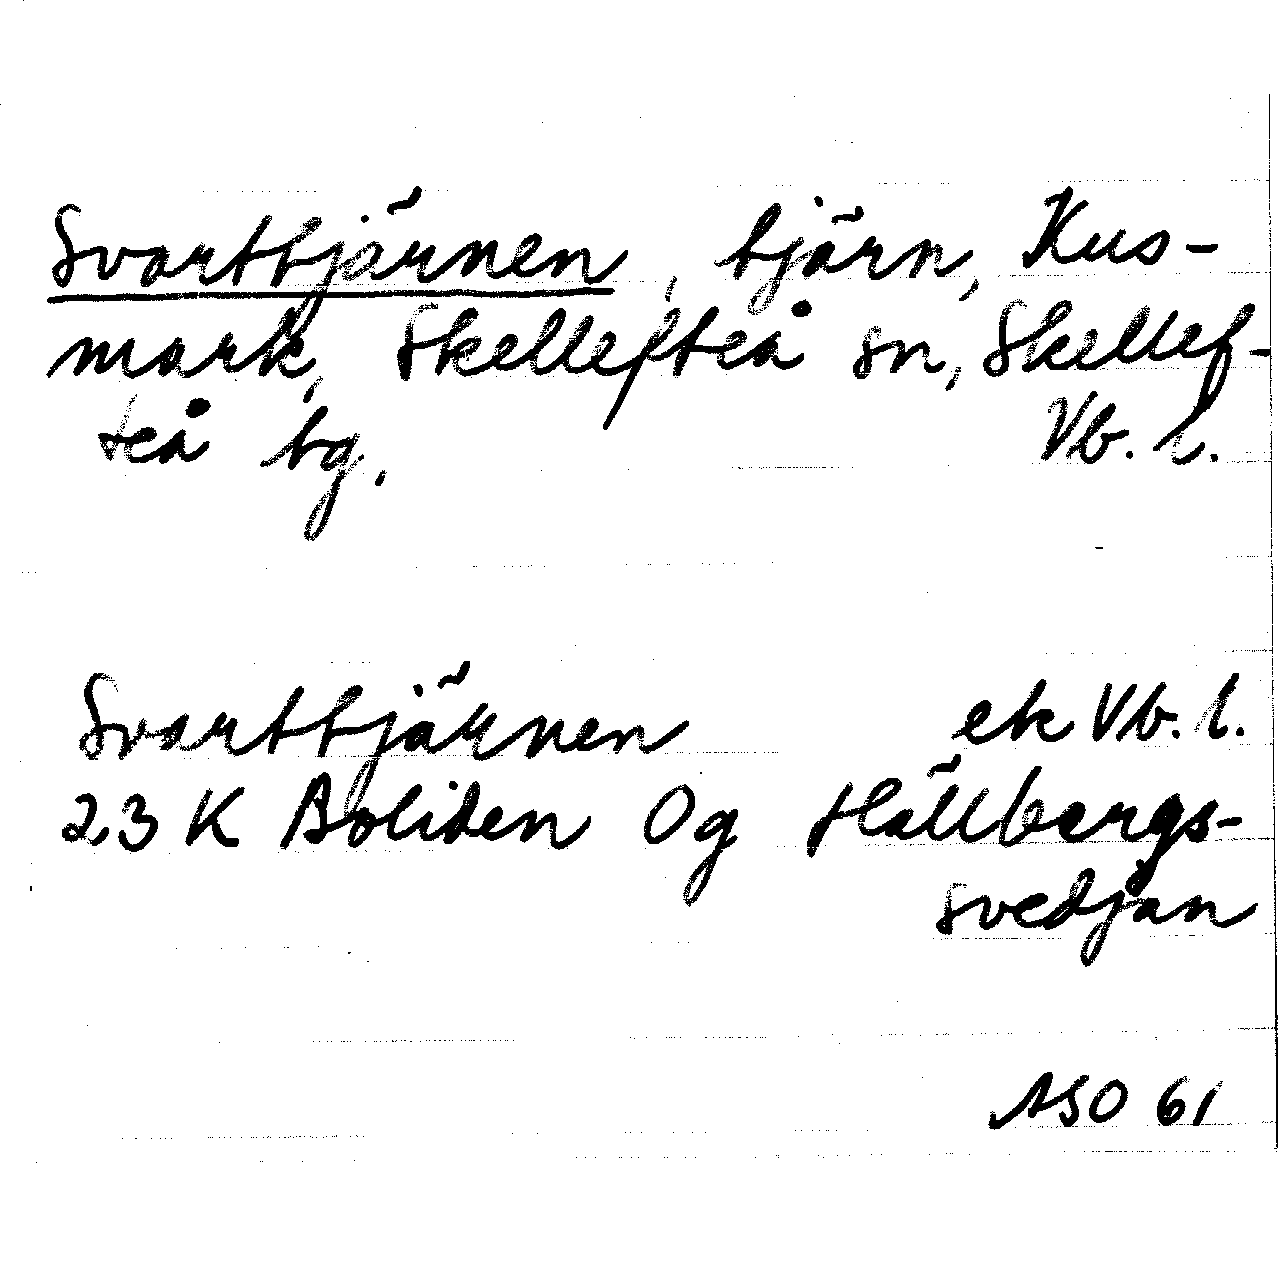 Svarttjärnen, tjärn, Kus-
mark, Skellefteå sn, Skellef-
teå tg. Vb. l.
Svarttjärnen ek Vb. l.
23 K Boliden 0g Hällbergs-
svedjan
ASO 61